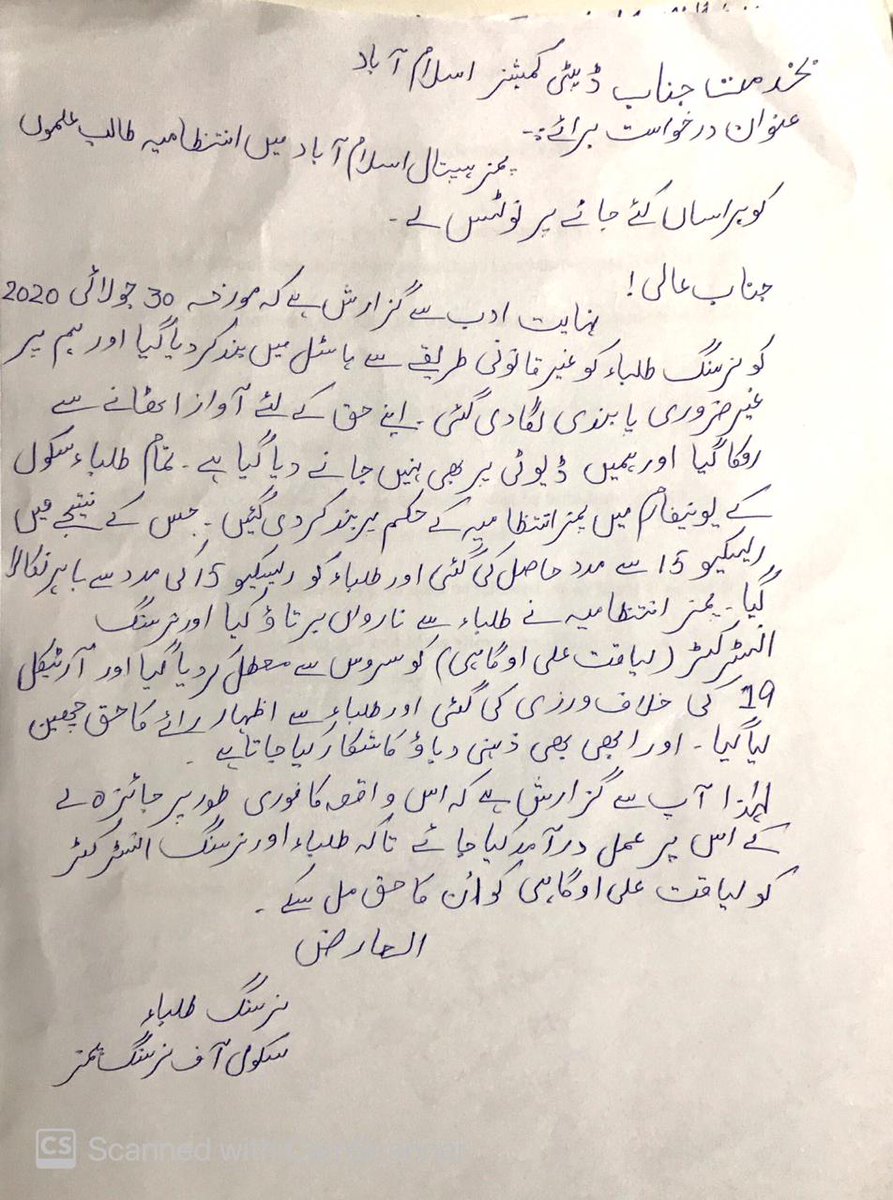 بخدمت جناب ڈپٹی کمیشنر اسلام آباد
عنوان درخواست برائے:-
پمز ہسپتال اسلام آباد میں انتظامیہ طالب علموں
کو ہراساں کئے جائے پر نوٹس لے۔
جناب عالی!
نہایت ادب سے گزارش ہے کہ مورخہ 30 جولائی 2020
کو نرسنگ طلباء کو غیر قانونی طریقے سے ہاسٹل میں بند کر دیا گیا اور ہم پر
غیر ضروری پابندی لگا دی گئی۔ اپنے حق کے لئے آواز اٹھانے سے
روکا گیا اور ہمیں ڈیوٹی پر بھی نہیں جانے دیا گیا ہے۔ تمام طلباء سکول
کے یونیفارم میں پمز انتظامیہ کے حکم پر بند کر دی گئیں۔ جس کے نتیجے میں
ریسکیو 15 سے مدد حاصل کی گئی اور طلباء کو ریسکیو 15 کی مدد سے باہر نکالا
گیا۔ پمز انتظامیہ نے طلباء سے نارواں برتاؤ کیا اور نرسنگ
انسٹرکٹر (لیاقت علی اوگاہی) کو سروس سے معطل کر دیا گیا اور آرٹیکل
19 کی خلاف ورزی کی گئی اور طلباء سے اظہار رائے کا حق چھین
لیا گیا۔ اور ابھی بھی ذہنی دباؤ کا شکار کیا جاتا ہے۔
لہٰذا آپ سے گزارش ہے کہ اس واقعہ کا فوری طور پر جائزہ لے
کے اس پر عمل درآمد کیا جائے تاکہ طلباء اور نرسنگ انسٹرکٹر
کو لیاقت علی اوگاہی کو اُن کا حق مل سکے۔
العارض
نرسنگ طلباء
سکول آف نرسنگ پمز
CS Scanned with CamScanner